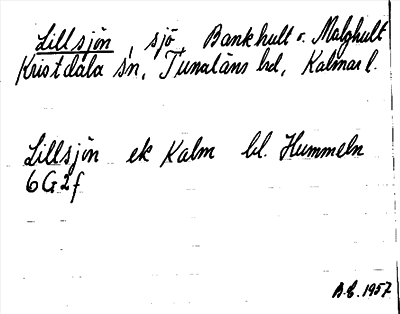 Lillsjön, sjö, Bankhult o. Malghult
Kristdala sn, Tunaläns hd, Kalmar l.
Lillsjön ek Kalm bl. Hummeln
6G2f
A.E. 1957